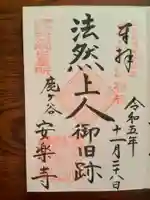 奉拝
令和五年
十一月二十八日
法然上人御旧跡
鹿ヶ谷
安楽寺